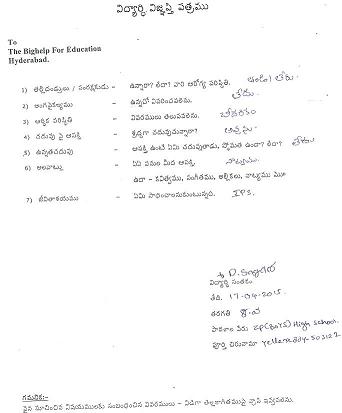 విద్యార్థి విజ్ఞప్తి పత్రము
To
The Bighelp For Education
Hyderabad.
1) తల్లిదండ్రులు / సంరక్షకుడు - ఉన్నారా? లేదా? వారి ఆరోగ్య పరిస్థితి. తండ్రి లేరు
2) అంగవైకల్యము - ఉన్నచో వివరింపవలెను. లేదు
3) ఆర్థిక పరిస్థితి - వివరములు తెలుపవలెను. పేదరికం
4) చదువు పై ఆసక్తి - శ్రద్ధగా చదువుచున్నారా?
5) ఉన్నతచదువు - ఆసక్తి ఉంటే ఏమి చదువుతాడు, స్తోమత ఉందా? లేదా? లేదు
6) అలవాట్లు - ఏఏ పనుల మీద ఆసక్తి. నాట్యము
ఉదా - కవిత్వము, సంగీతము, అల్లికలు, నాట్యము మొ
7) జీవితాశయము - ఏమి సాధించాలనుకుంటున్నది. IPS.
D.
విద్యార్థి సంతకం.
తేది. 17-04-2015.
తరగతి
పాఠశాల పేరు ZP(BOYS) High school.
పూర్తి చిరునామా Yellareddy-503122
గమనిక:-
పైన సూచించిన విషయములకు సంబంధించిన వివరములు - విడిగా తెల్లకాగితముపై వ్రాసి ఇవ్వవలెను.